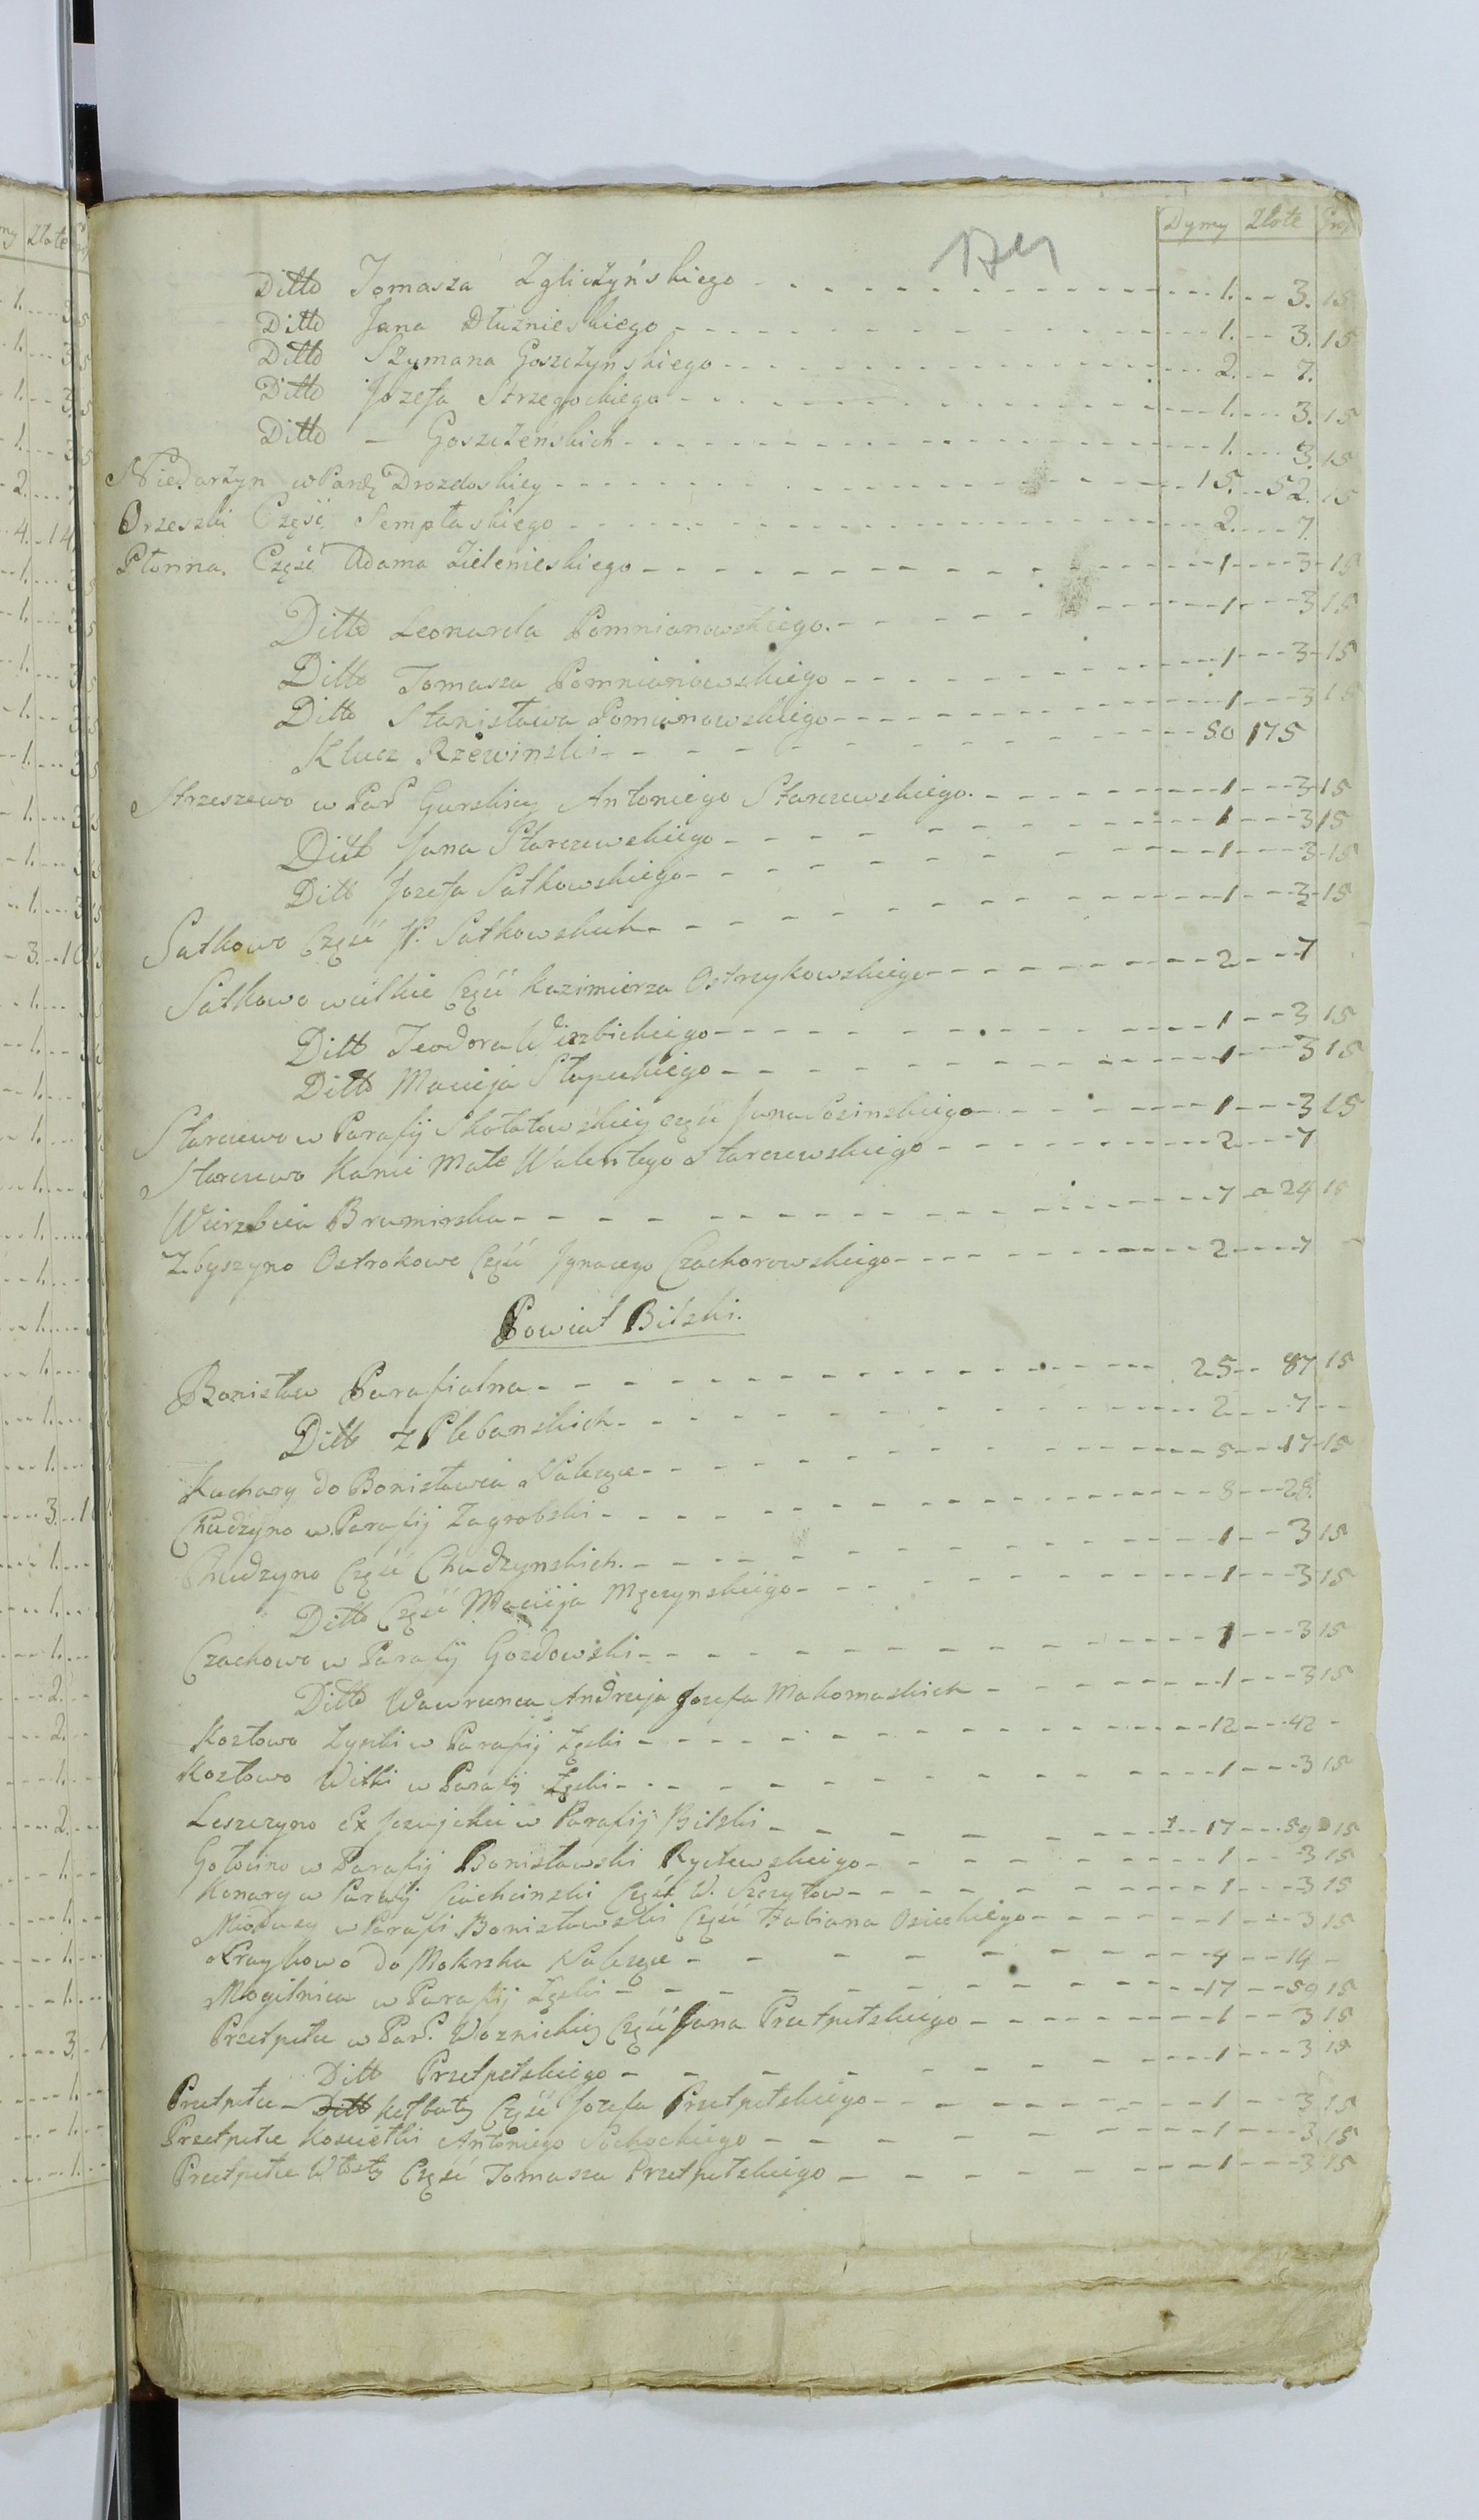 Dymy Złote Gro
Ditto Tomasza Zgliczyńskiego 1. 3. 15
Ditto Jana Dłuznieskiego 1. 3. 15
Ditto Szymana Goszczyńskiego 2. 7.
Ditto Jozefa Strzegockiego 1. 3. 15
Ditto – Goszczeńskich 1. 3. 15
Niedarzyn w Parafij Drozdoskiey 15. 52. 15
Orzeszki Część Sempławskiego 2. 7.
Płonna. Część Adama Zielenieskiego 1 3 15
Ditto Leonarda Pomnianowskiego. 1 3 15
Ditto Tomasza Pomnianowskiego 1 3 15
Ditto Stanisława Pomianowskiego 1 3 15
Klucz Rzewinski 50 175
Strzeszewo w Par Gurskiey Antoniego Starczewskiego. 1 3 15
Ditto Jana Starczewskiego 1 3 15
Ditto Jozefa Sutkowskiego 1 3 15
Sutkowo Część JP. Sutkowskich 1 3 15
Sutkowo wielkie Część Kazimierza Ostrzykowskiego 2 7
Ditto Teodora Wierzbickiego 1 3 15
Ditto Macieja Słupeckiego 1 3 15
Starczewo w Parafij Skołatowskiey część Jana Sosinskiego 1 3 15
Starczewo Kanie Małe Walentego Starczewskiego 2 7
Wierzbica Brumirska 7 24 15
Zbyszyno Ostrokowo Część Jgnacego Czachorowskiego 2 7
Powiat Bilski.
Bonisław Parafialna 25 87 15
Ditto z Plebanskich 2 7
Kuchary do Bonisławia Należące 5 17 15
Chudzyno w Parafij Zagrobski 8 28
Chudzyno Część Chudzynskich. 1 3 15
Ditto Część Macieja Męczynskiego 1 3 15
Czachowo w Parafij Gozdowski 1 3 15
Ditto Wawrunca Andrzeja Jozefa Makomaskich 1 3 15
Kozłowo Łynki w Parafij Łęski 12 42
Kozłowo Witki w Parafij Łęski 1 3 15
Leszczyno Ex Jezuickie w Parafij Bilski 17 59 15
Gołocino w Parafij Bonisławski Rycłewskiego 1 3 15
Konary w Parafij Ciachcinski Część W. Szczytow 1 3 15
Miodusy w Parafi Bonisławski Część Fabiana Osieckiego 1 3 15
do Mokrska Należące 4 14
Mogilnica w Parafij Łęski 17 59 15
Przetpełce w Par. Woznickiey Część Jana Przetpełskiego 1 3 15
Ditto Przetpełskiego 1 3 15
Przetpełce Ditto Kełbaty Część Jozefa Przetpełskiego 1 3 15
Przetpełce Kosciełki Antoniego Sochockiego 1 3 15
Przetpełce Włosty Część Tomasza Przetpełskiego 1 3 15